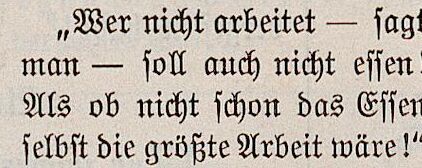 „Wer nicht arbeitet — sagt
man — soll auch nicht essen!
Als ob nicht schon das Essen
selbst die größte Arbeit wäre!“